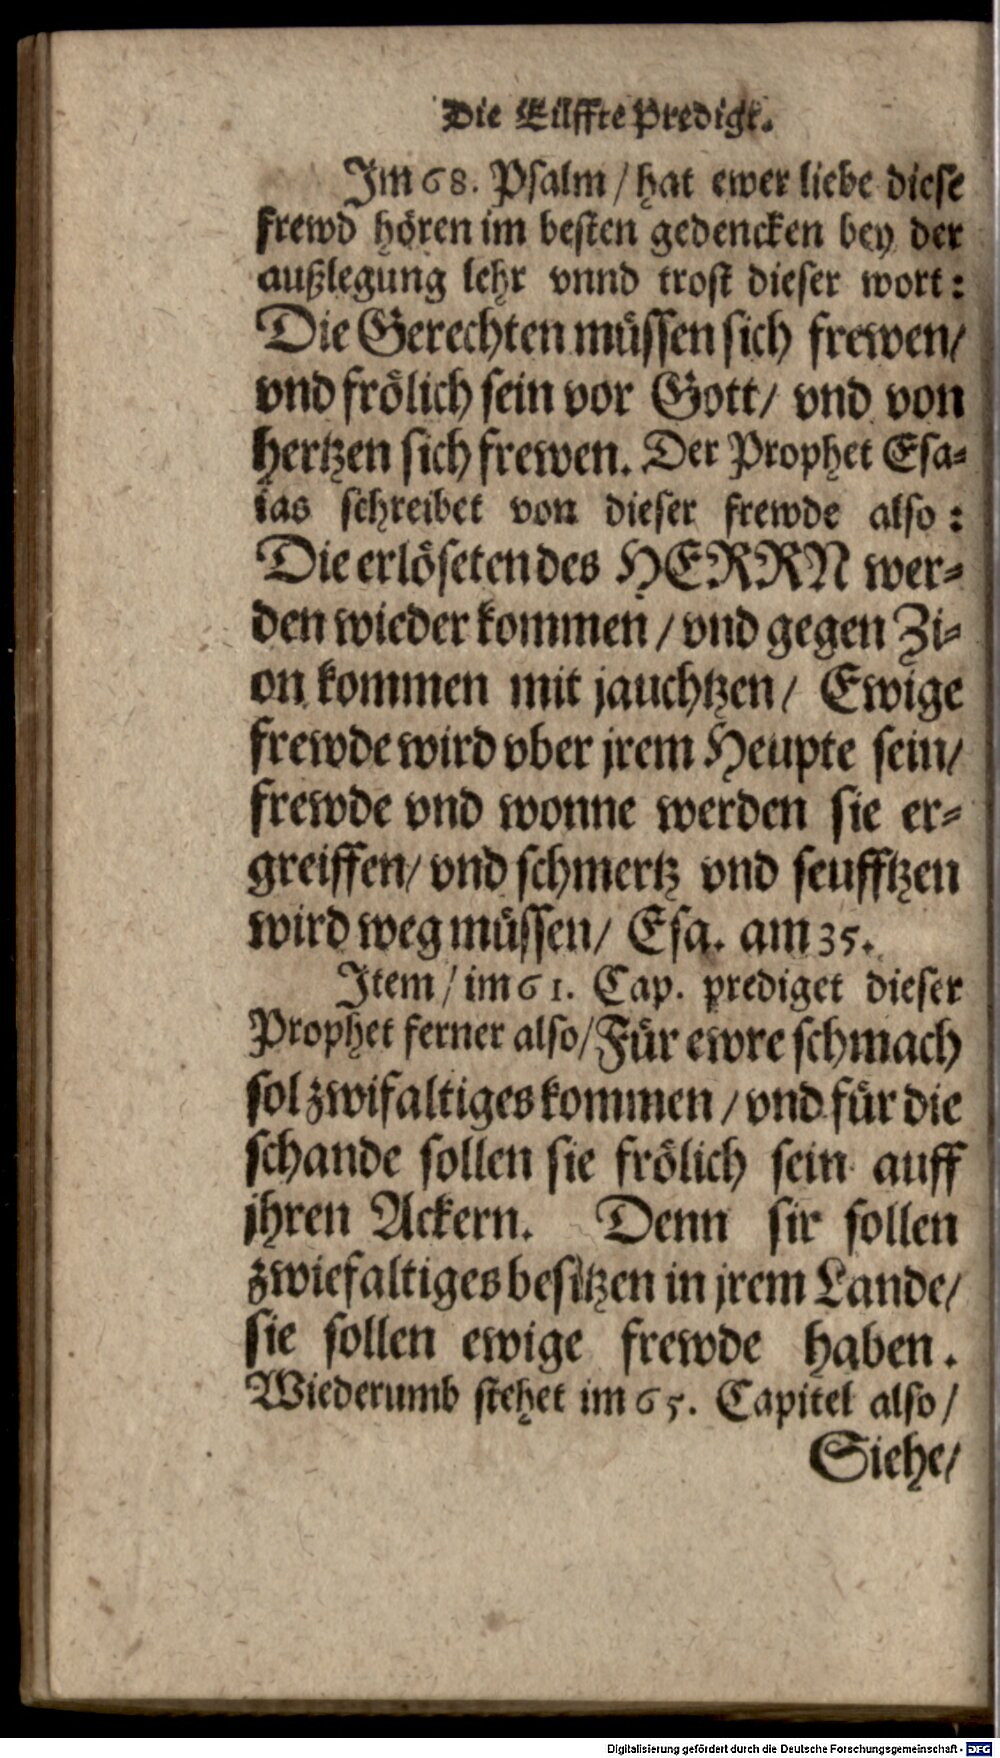 Die Eilffte Predigt.
Im 68. Psalm / hat ewer liebe diese
frewd hören im besten gedencken bey der
außlegung lehr vnnd trost dieser wort :
Die Gerechten müssen sich frewen/
vnd frölich sein vor Gott/ vnd von
hertzen sich frewen. Der Prophet Esa-
ias schreibet von dieser frewde also :
Die erlöseten des HERRN wer-
den wieder kommen / vnd gegen Zi-
on kommen mit jauchtzen/ Ewige
frewde wird vber jrem Heupte sein/
frewde vnd wonne werden sie er-
greiffen/ vnd schmertz vnd seufftzen
wird weg müssen/ Esa. am 35.
Item / im 61. Cap. prediget dieser
Prophet ferner also/ Für ewre schmach
sol zwifaltiges kommen / vnd für die
schande sollen sie frölich sein auff
jhren Ackern. Denn sir sollen
zwiefaltiges besitzen in jrem Lande/
sie sollen ewige frewde haben.
Wiederumb stehet im 65. Capitel also/
Siehe/
Digitalisierung gefördert durch die Deutsche Forschungsgemeinschaft - DFG